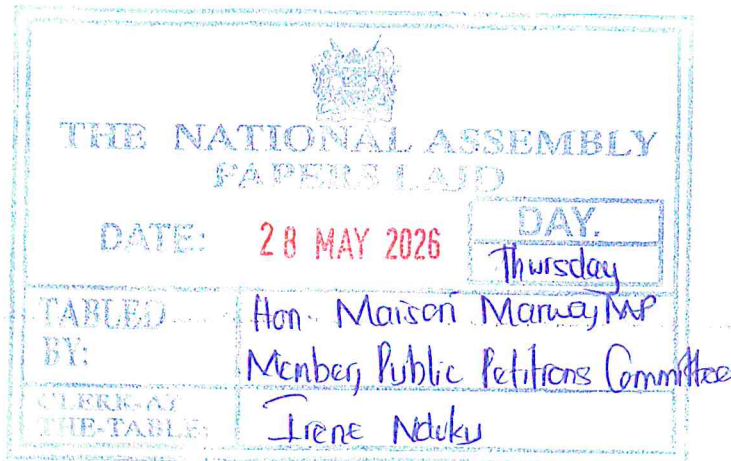 THE NATIONAL ASSEMBLY
PAPERS LAID
DATE: 28 MAY 2026
DAY.
Thursday
TABLED BY:
Hon. Maisori Marwa, MP
Member, Public Petitions Committee
CLERK-AT THE-TABLE:
Irene Nduku